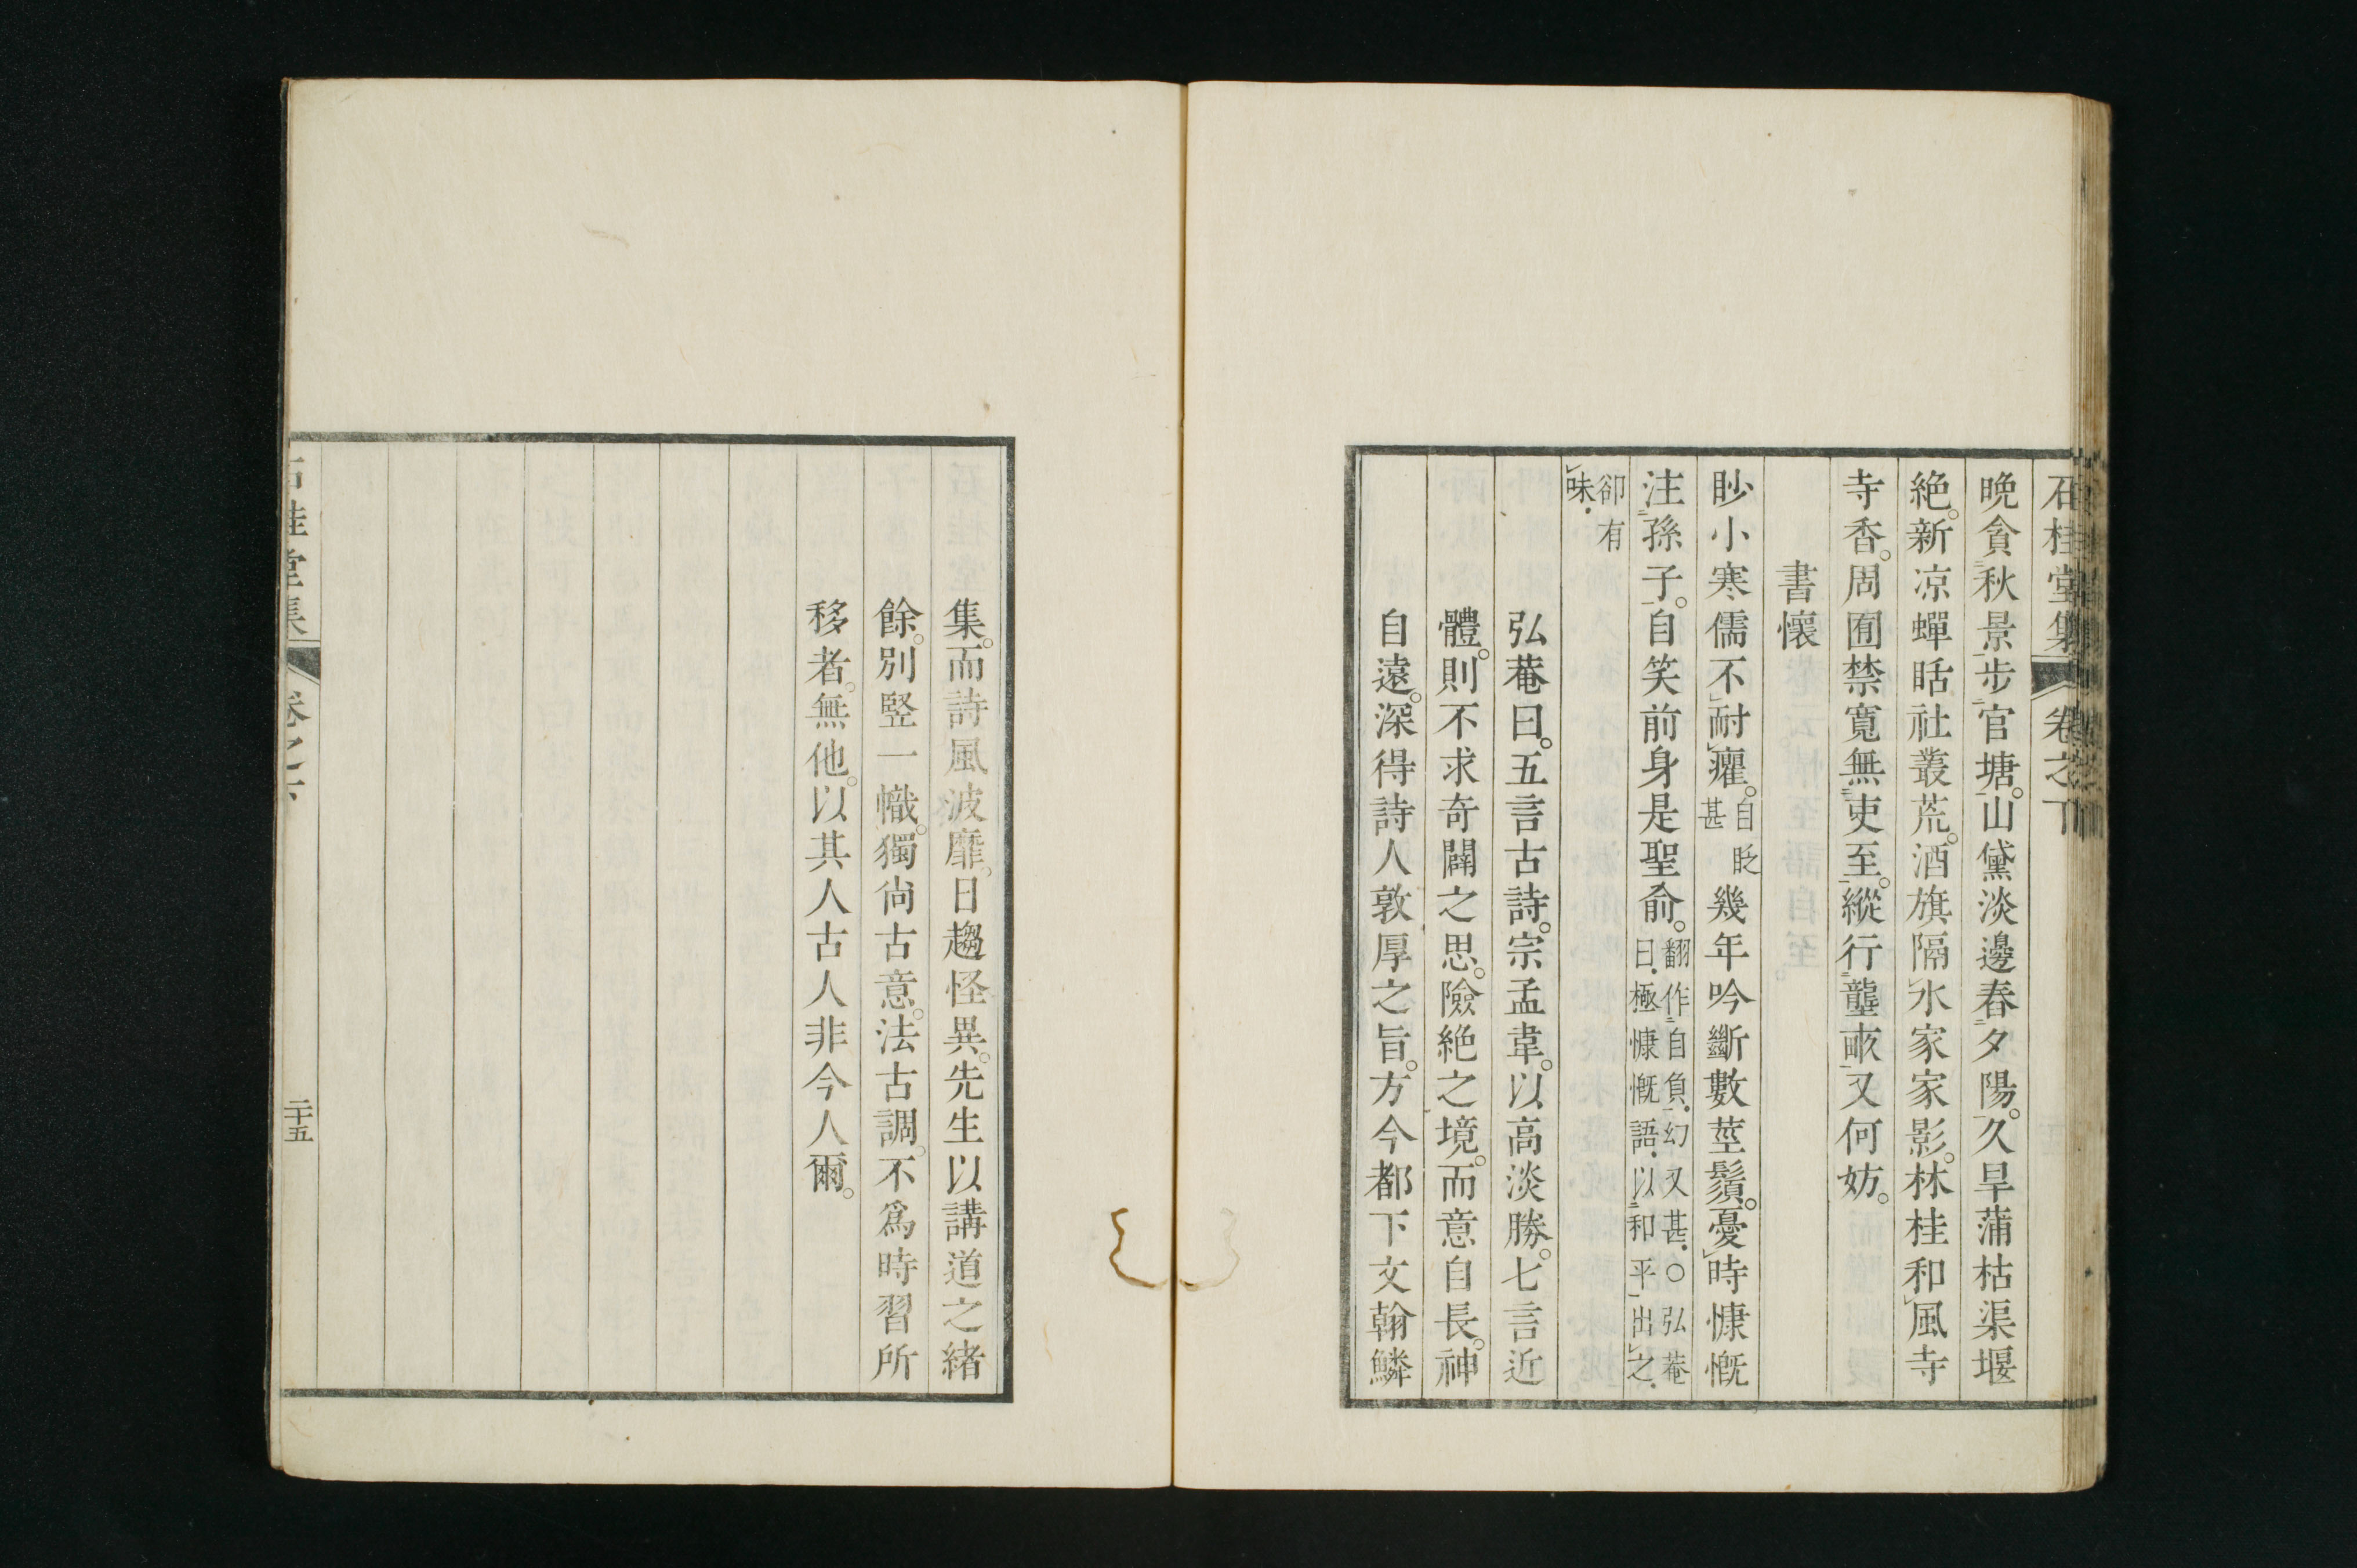 石桂堂集 卷之下
晩貪秋景步官塘。山黛淡邊春夕陽。久旱蒲枯渠堰
絶。新凉蟬聒社叢荒。酒旗隔水家家影。林桂和風寺
寺香。周囿禁寬無吏至。縱行壟畝又何妨。
書懷
眇小寒儒不耐癯。自貶甚幾年吟斷數莖鬚。憂時慷慨
注孫子。自笑前身是聖俞。翻作自負。幻又甚。○弘菴曰。極慷慨語。以和平出之。
卻有味。
弘菴曰。五言古詩。宗孟韋。以高淡勝。七言近
體。則不求奇闢之思。險絶之境。而意自長。神
自遠。深得詩人敦厚之旨。方今都下文翰鱗
集。而詩風波靡。日趨怪異。先生以講道之緒
餘。別竪一幟。獨尙古意。法古調。不爲時習所
移者。無他。以其人古人非今人爾。
石桂堂集 卷之下 二十五